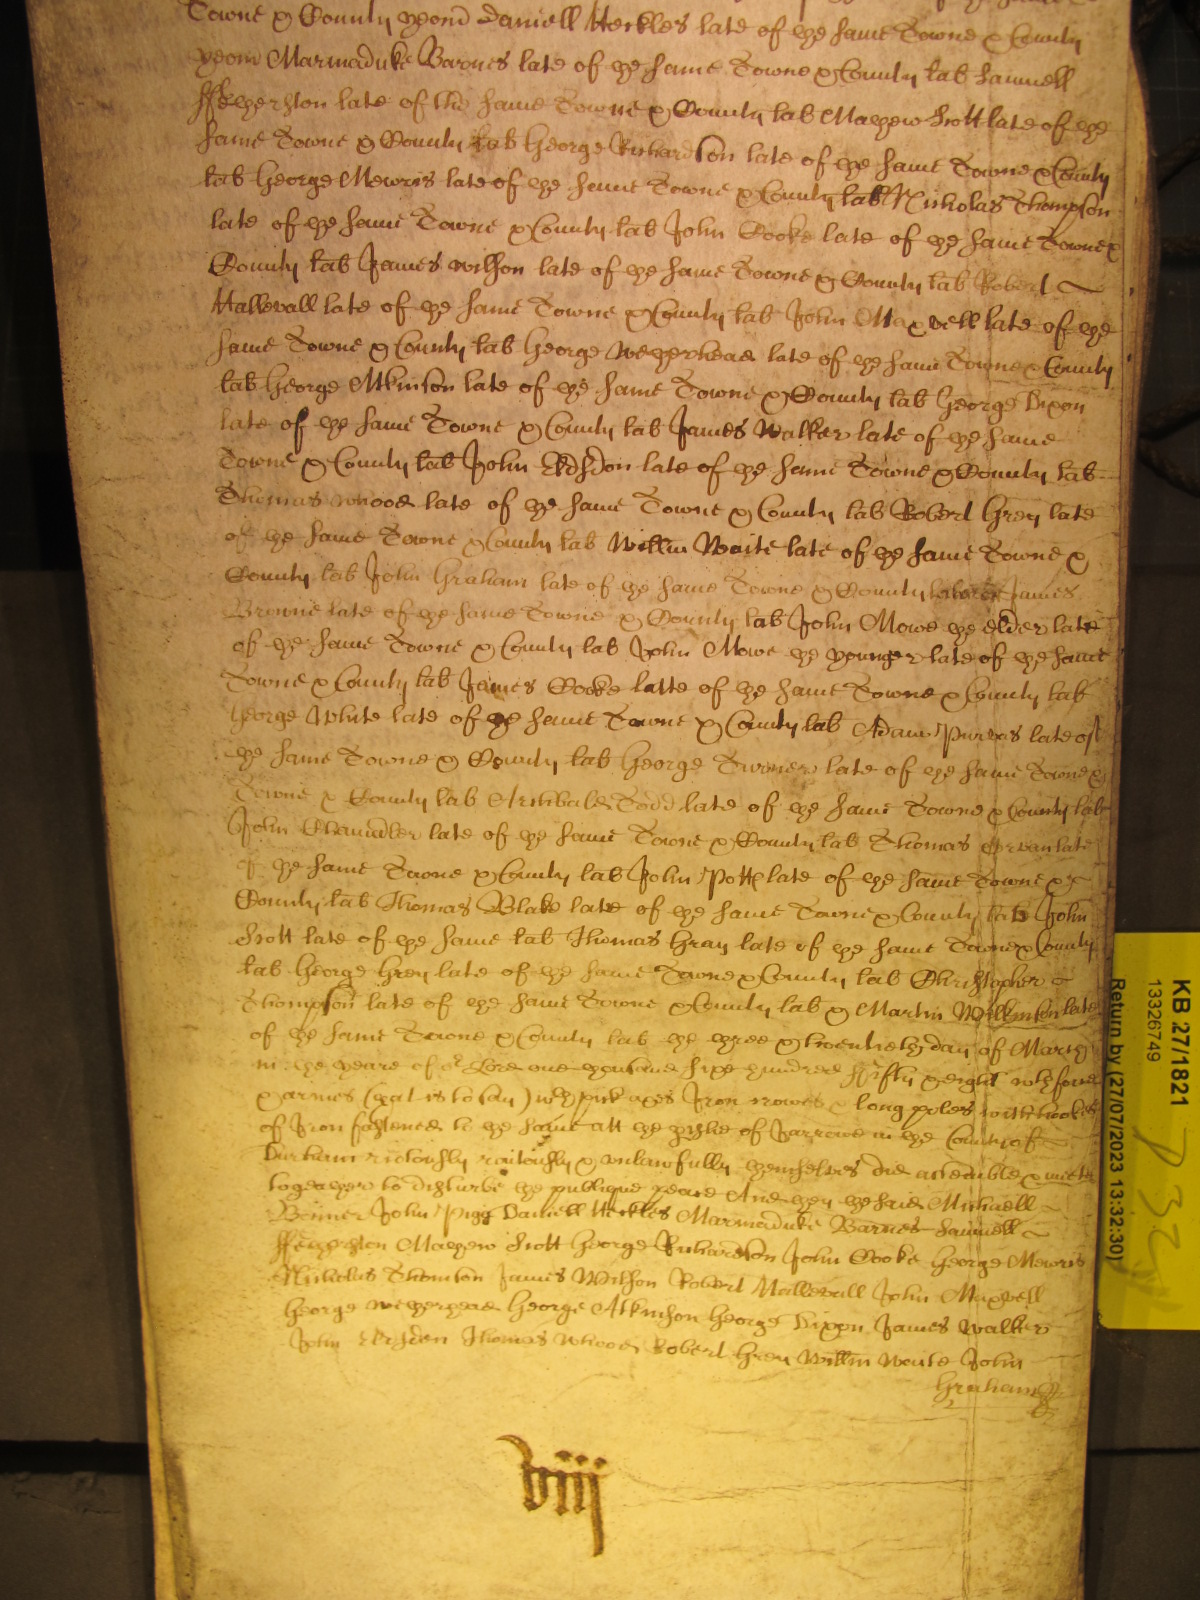 Towne & County yeom Daniell Herkles late of the same Towne & County
yeom Marmaduke Barnes late of the same Towne & County lab Samuell
ffetherston late of the same Towne & County lab Mathew Scott late of the
same Towne & County lab George Richardson late of the same Towne & County
lab George Mewris late of the same Towne & County lab Nicholas Thompson
late of the same Towne & County lab John Cooke late of the same Towne &
County lab James Wilson late of the same Towne & County lab Robert
Hallewall late of the same Towne & County lab John Maxwell late of the
same Towne & County lab George Wetherhead late of the same Towne & County
lab George Atkinson late of the same Towne & County lab George Dixon
late of the same Towne & County lab James Walker late of the same
Towne & County lab John late of the same Towne & County lab
Thomas Whood late of the same Towne & County lab Robert Grey late
of the same Towne & County lab Willm Waite late of the same Towne &
County lab John Graham late of the same Towne & County James
Browne late of the same Towne & County lab John Mowe the elder late
of the same Towne & County lab John Mowe the younger late of the same
Towne & County lab James Cooke late of the same Towne & County lab
George White late of the same Towne & County lab Adam Purvas late of
the same Towne & County lab George Turner late of the same Towne &
Towne & County lab Archbald Todd late of the same Towne & County lab
John Chamdler late of the same Towne & County lab Thomas late
of the same Towne & County lab John Potts late of the same Towne &
County lab Thomas Blake late of the same Towne & County lab John
Scott late of the same lab Thomas Gray late of the same Towne & County
lab George Grey late of the same Towne & County lab Christopher
Thompson late of the same Towne & County lab & Martin Wilkinson late
of the same Towne & County lab the three & twentieth day of March
in the yeare of or Lord one thousand sixe hundred ffifty & eight with force
& armes (that is to say) with pick axes Iron crowes & long poles with hookes
of Iron fastened to the same att the of Jarrowe in the County of
Durham riotously routously & unlawfully themselves did assemble & meete
together to disturbe the publique peace And they the said Michaell
Bonner John Pigg Daniell Herkles Marmaduke Barnes Samuell
ffetherston Mathew Scott George Richardson John Cooke George Mewris
Nicholas Thomson James Wilson Robert Hallewall John Maxwell
George Wetherhead George Atkinson George Dixon James Walker
John Thomas Whood Robert Grey Willm Waite John
Graham
viij
KB 27/1821
13326749
Return by (27/07/2023 13:32:30)